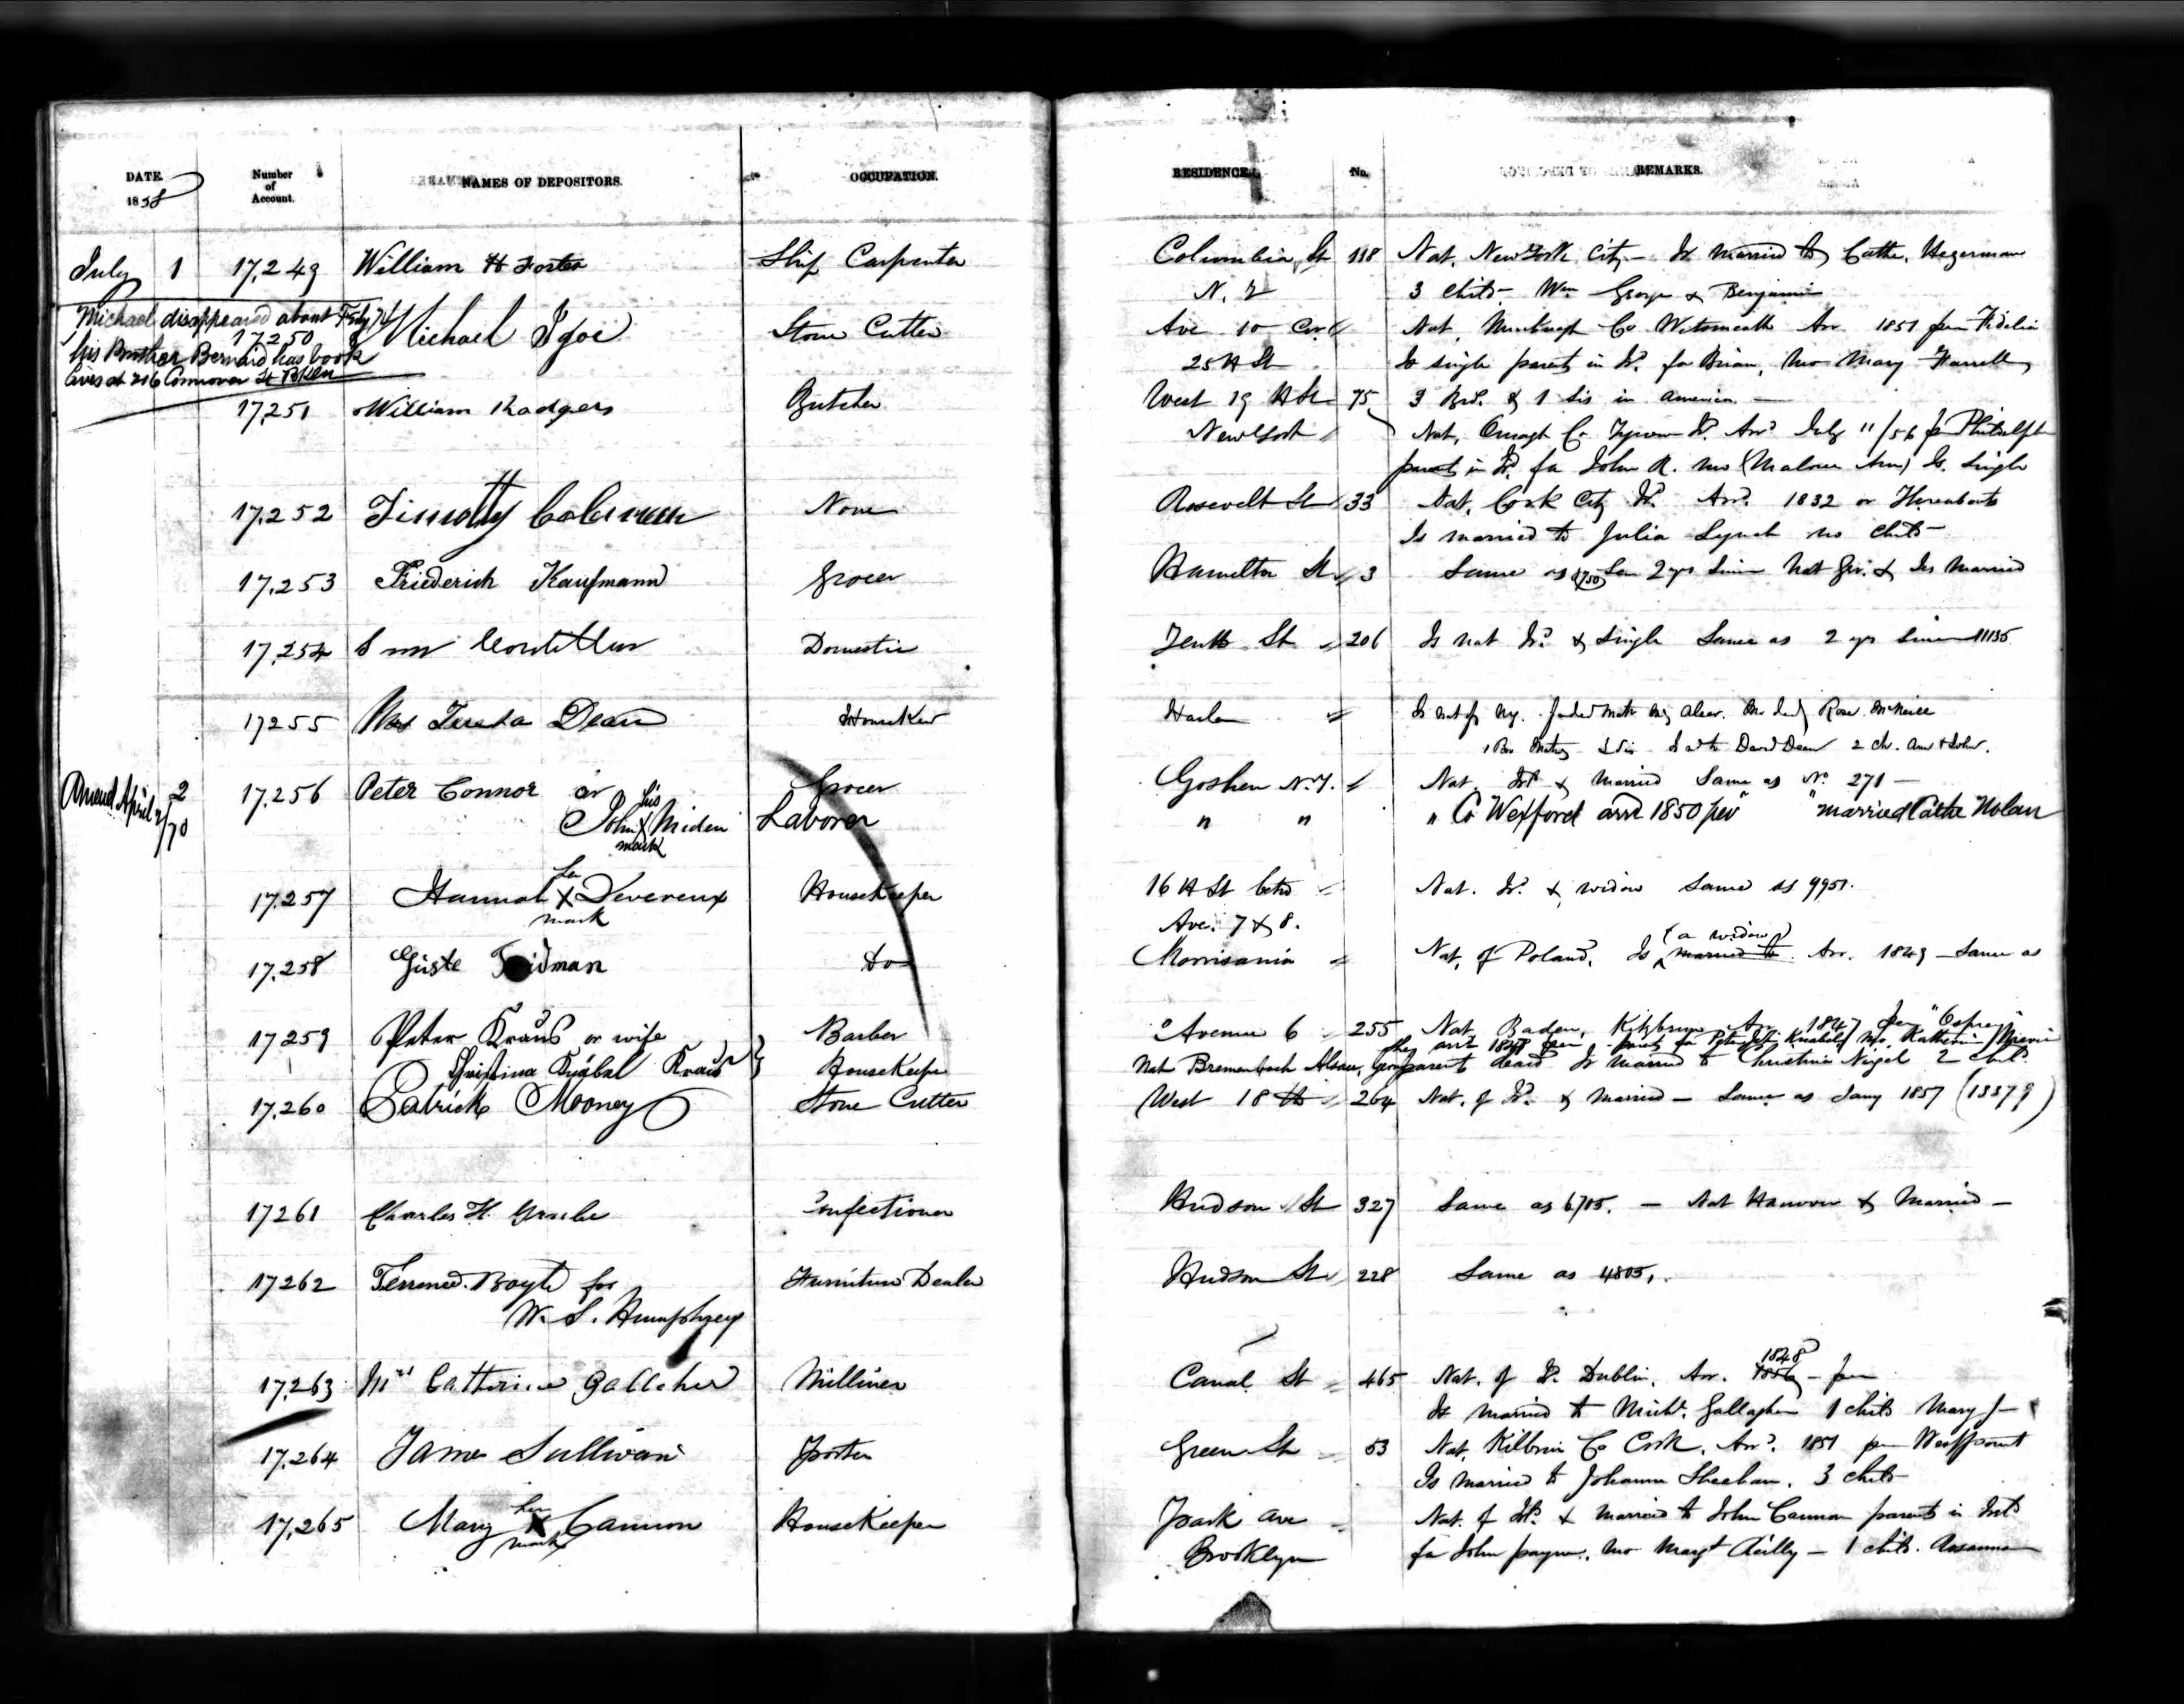 DATE.
1858
Number
of
Account.
NAMES OF DEPOSITORS.
OCCUPATION.
RESIDENCE.
No.
REMARKS.
July 1 17,249 William H Foster Ship Carpenter Columbia St 118 Nat. New York City - Is married to Cathe. Hegerman
N. Y 3 chils - Wm George & Benjamin
Michael disappeared about
17,250 Michael Igoe Stone Cutter Ave 10 Cor Nat. Co Westmeath Arr 1851 per Fidelia
his Brother Bernard has book
lives at 216 Connover St Bkln
25th St Is single parents in Id. fa Brian, mo Mary Farrell
17,251 William Rodgers Butcher West 19th St 75 3 Bro. & 1 sis in america
New York Nat. Omagh Co Tyrone Id. Arrd July 11/56 per Philadelph
parents in Id. fa John R. mo (Malone Ann) Is. Single
17,252 Timothy Coleman None Roosevelt St 33 Nat. Cork City Id. Arrd. 1832 or Thereabouts
Is married to Julia Lynch no chils -
17,253 Friederich Kaufmann Grocer Hamilton St 3 Same as 2 yrs since Nat Ger. & Is married
17,254 Domestic Tenth St 206 Is nat Id. & Single Same as 2 yrs since 11135
17255 Mrs Teresa Dean HouseKer Harlem Is nat of Ny. Rose McNeill
Is wd to David Dean 2 ch. Ann & John.
Amend April 2/70
2 17,256 Peter Connor or Grocer Goshen N.Y. Nat. Id & married Same as No 271 -
his
John X Miden Laborer " " " Co Wexford arrd 1850 per " " married Cathe Nolan
mark
her
17,257 Hannah X Devereux HouseKeeper 16th St betw Nat. Id. & widow Same as 9951.
mark
Ave. 7 & 8.
(a widow)
17,258 Güste Fridman do Morrisania Nat. of Poland. Is married to. Arr. 1849 - Same as
17259 Peter Kraus or wife Barber Avenue 6 255 Nat. Baden, Arr 1847 per "Osprey"
she arrd 1848 per
Christina Knäbel Kraus HouseKeeper Nat Bremenbach Alsace, parents dead Is married to Christina Nigel 2 chil
17,260 Patrick Mooney Stone Cutter West 18th 264 Nat. of Id. & married - Same as Jany 1857 (13379)
17261 Charles H. Grube Confectioner Hudson St 327 Same as 6705. - Nat Hanover & Married -
17262 Terrence Boyle for Furniture Dealer Hudson St 228 Same as 4805.
W. S. Humphrey
1848
17,263 Mrs Catherine Gallaher Milliner Canal St 465 Nat. of Id. Dublin. Arr. 1856 - per
Is married to Michl. Gallagher 1 chils Mary J -
17,264 James Sullivan Porter Green St 53 Nat. Kilbrin Co Cork. Arrd. 1851 per Westpoint
Is married to Johanna Sheehan. 3 chils -
her
17,265 Mary X Cannon HouseKeeper Park ave Nat. of Id. & married to John Cannon parents in Ireld
mark
Brooklyn fa John payne, mo Margt Reilly - 1 chils. Rosanna